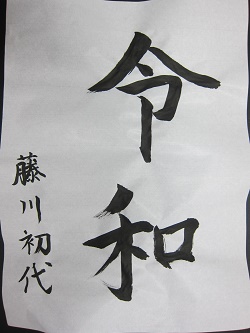 令和
藤川初代